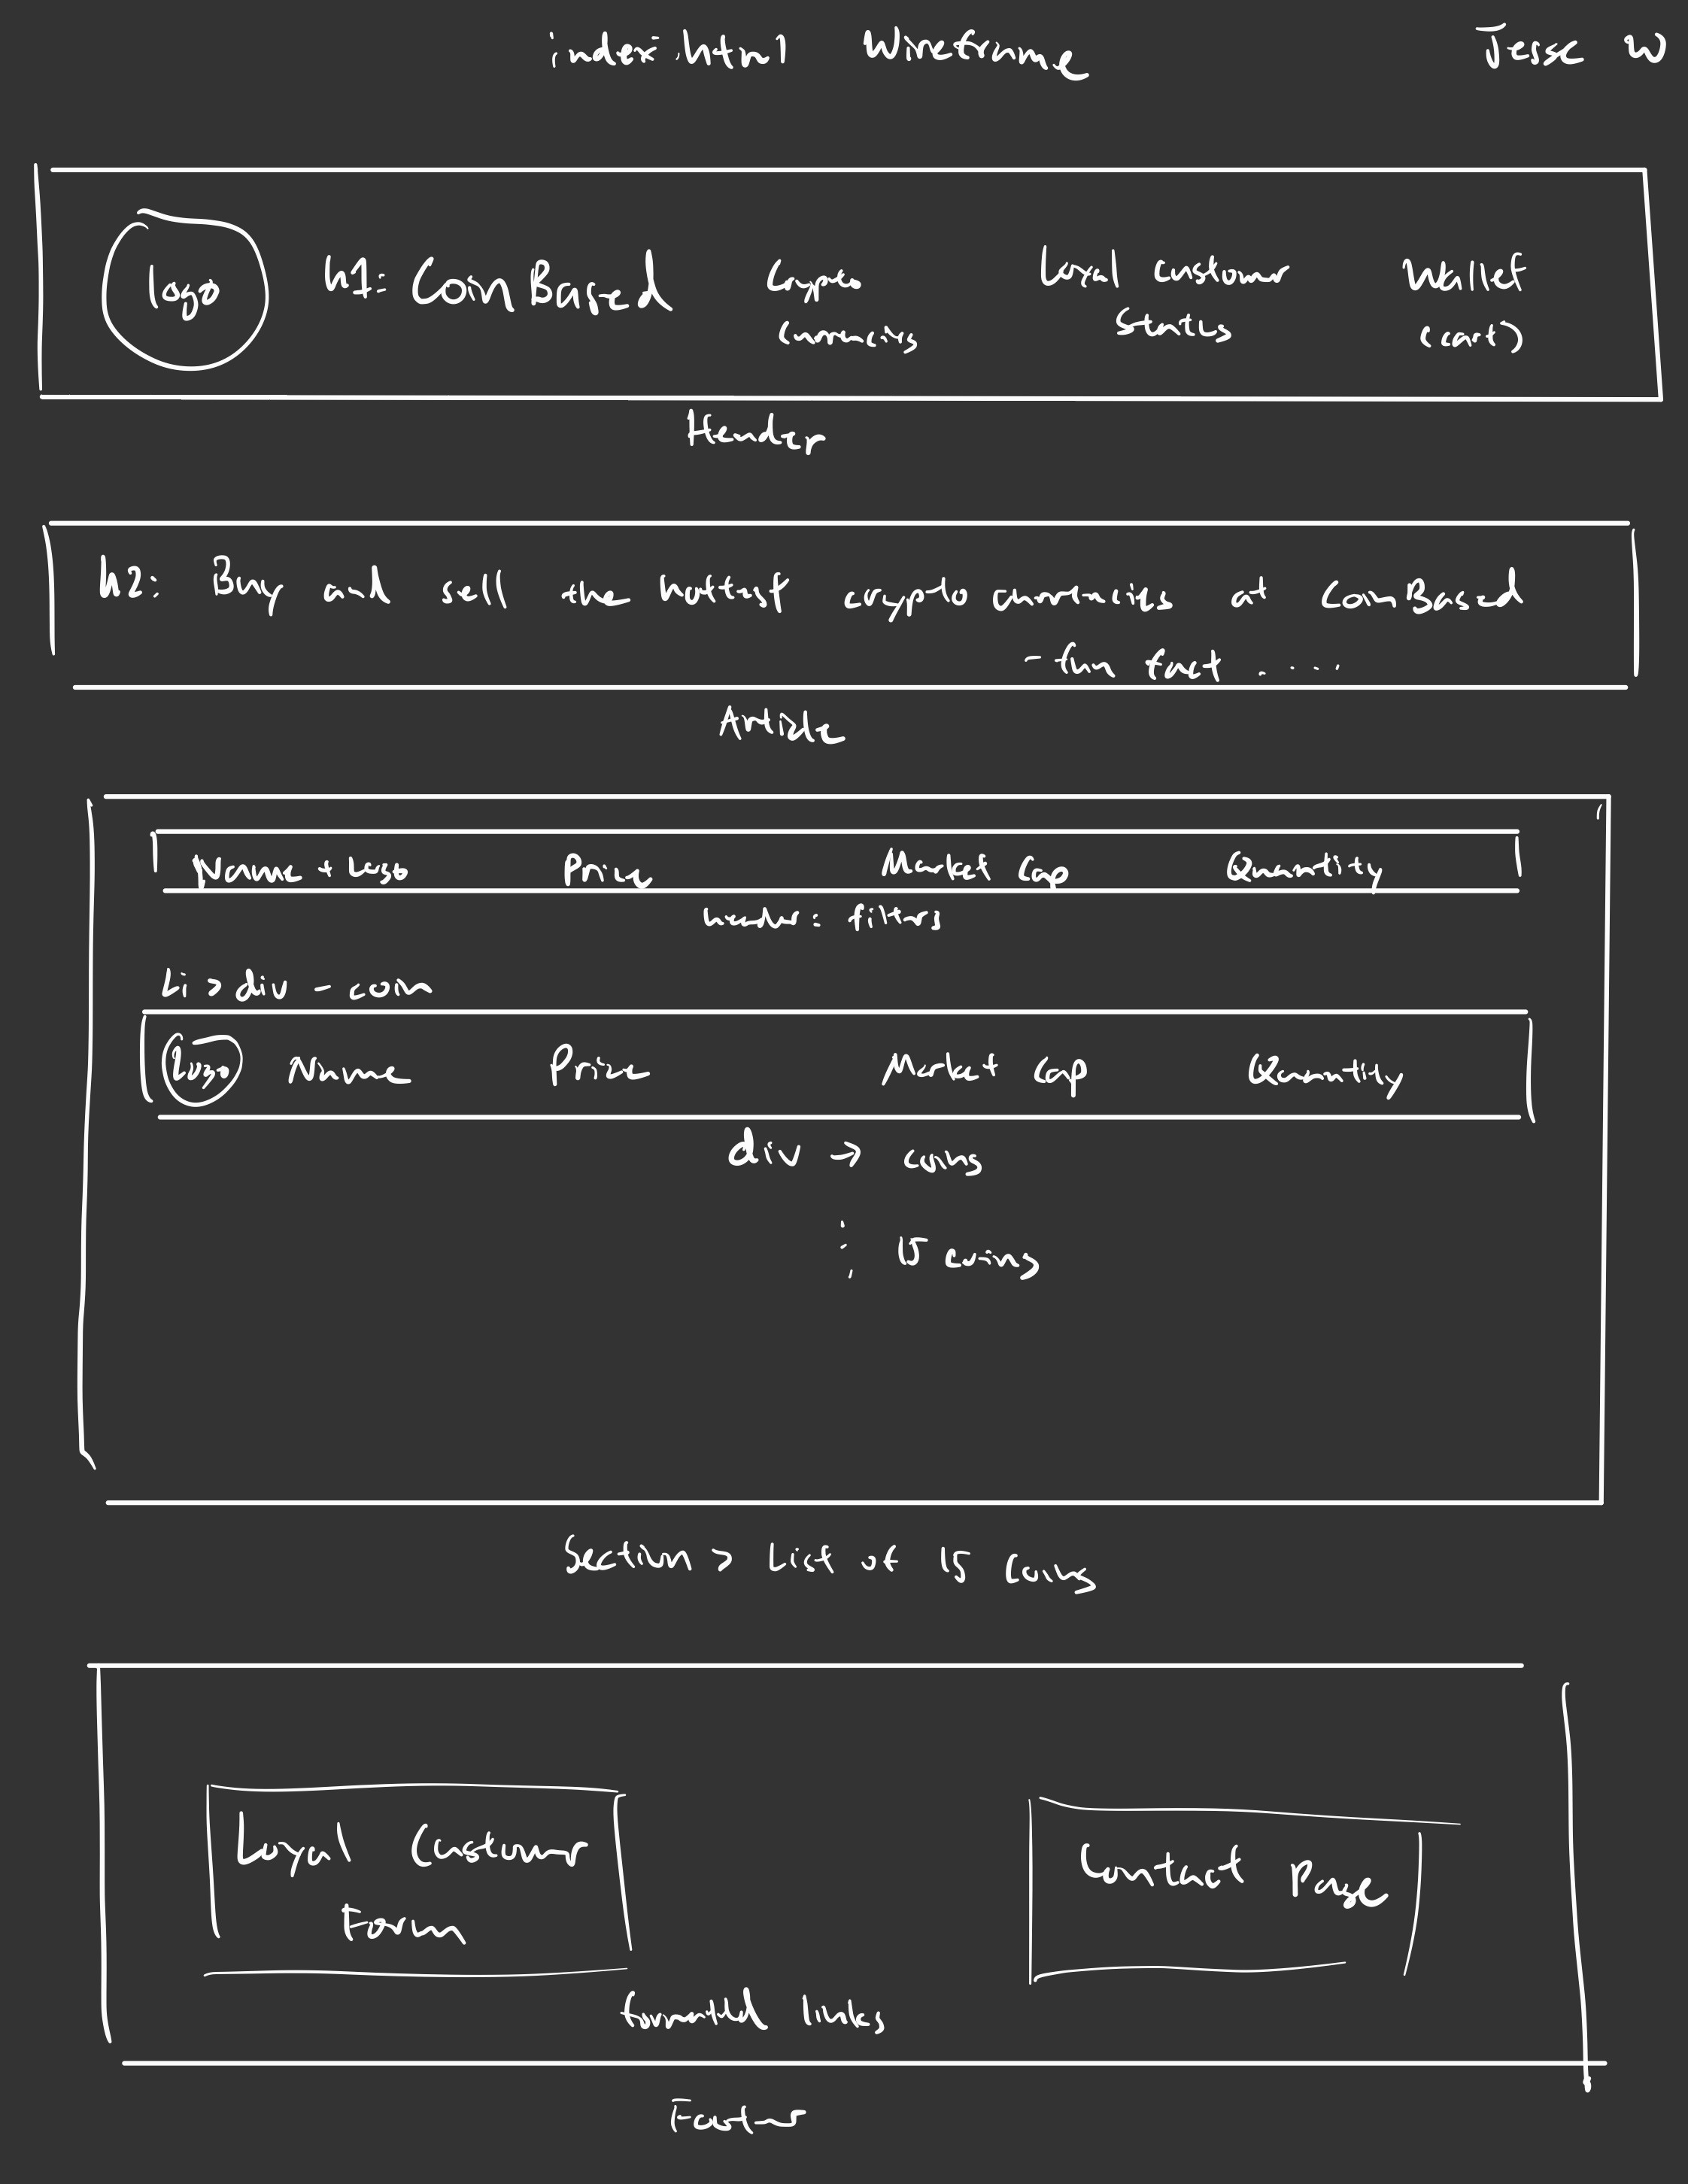 index.html Wireframe Jess W
Logo H1: CoinBased Crypto Loyal customer Wallet
Currencies Status (cart)
Header
h2: Buy and sell the hottest crypto currencies at CoinBased
- fun fact ....
Article
Name + logo Price Market Cap Quantity
header: filters
Li > div - coin
Logo Name Price Market Cap Quantity
div → coins
: 15 coins
Section > List of 15 coins
Loyal Customer Contact Page
form
formatted links
Footer